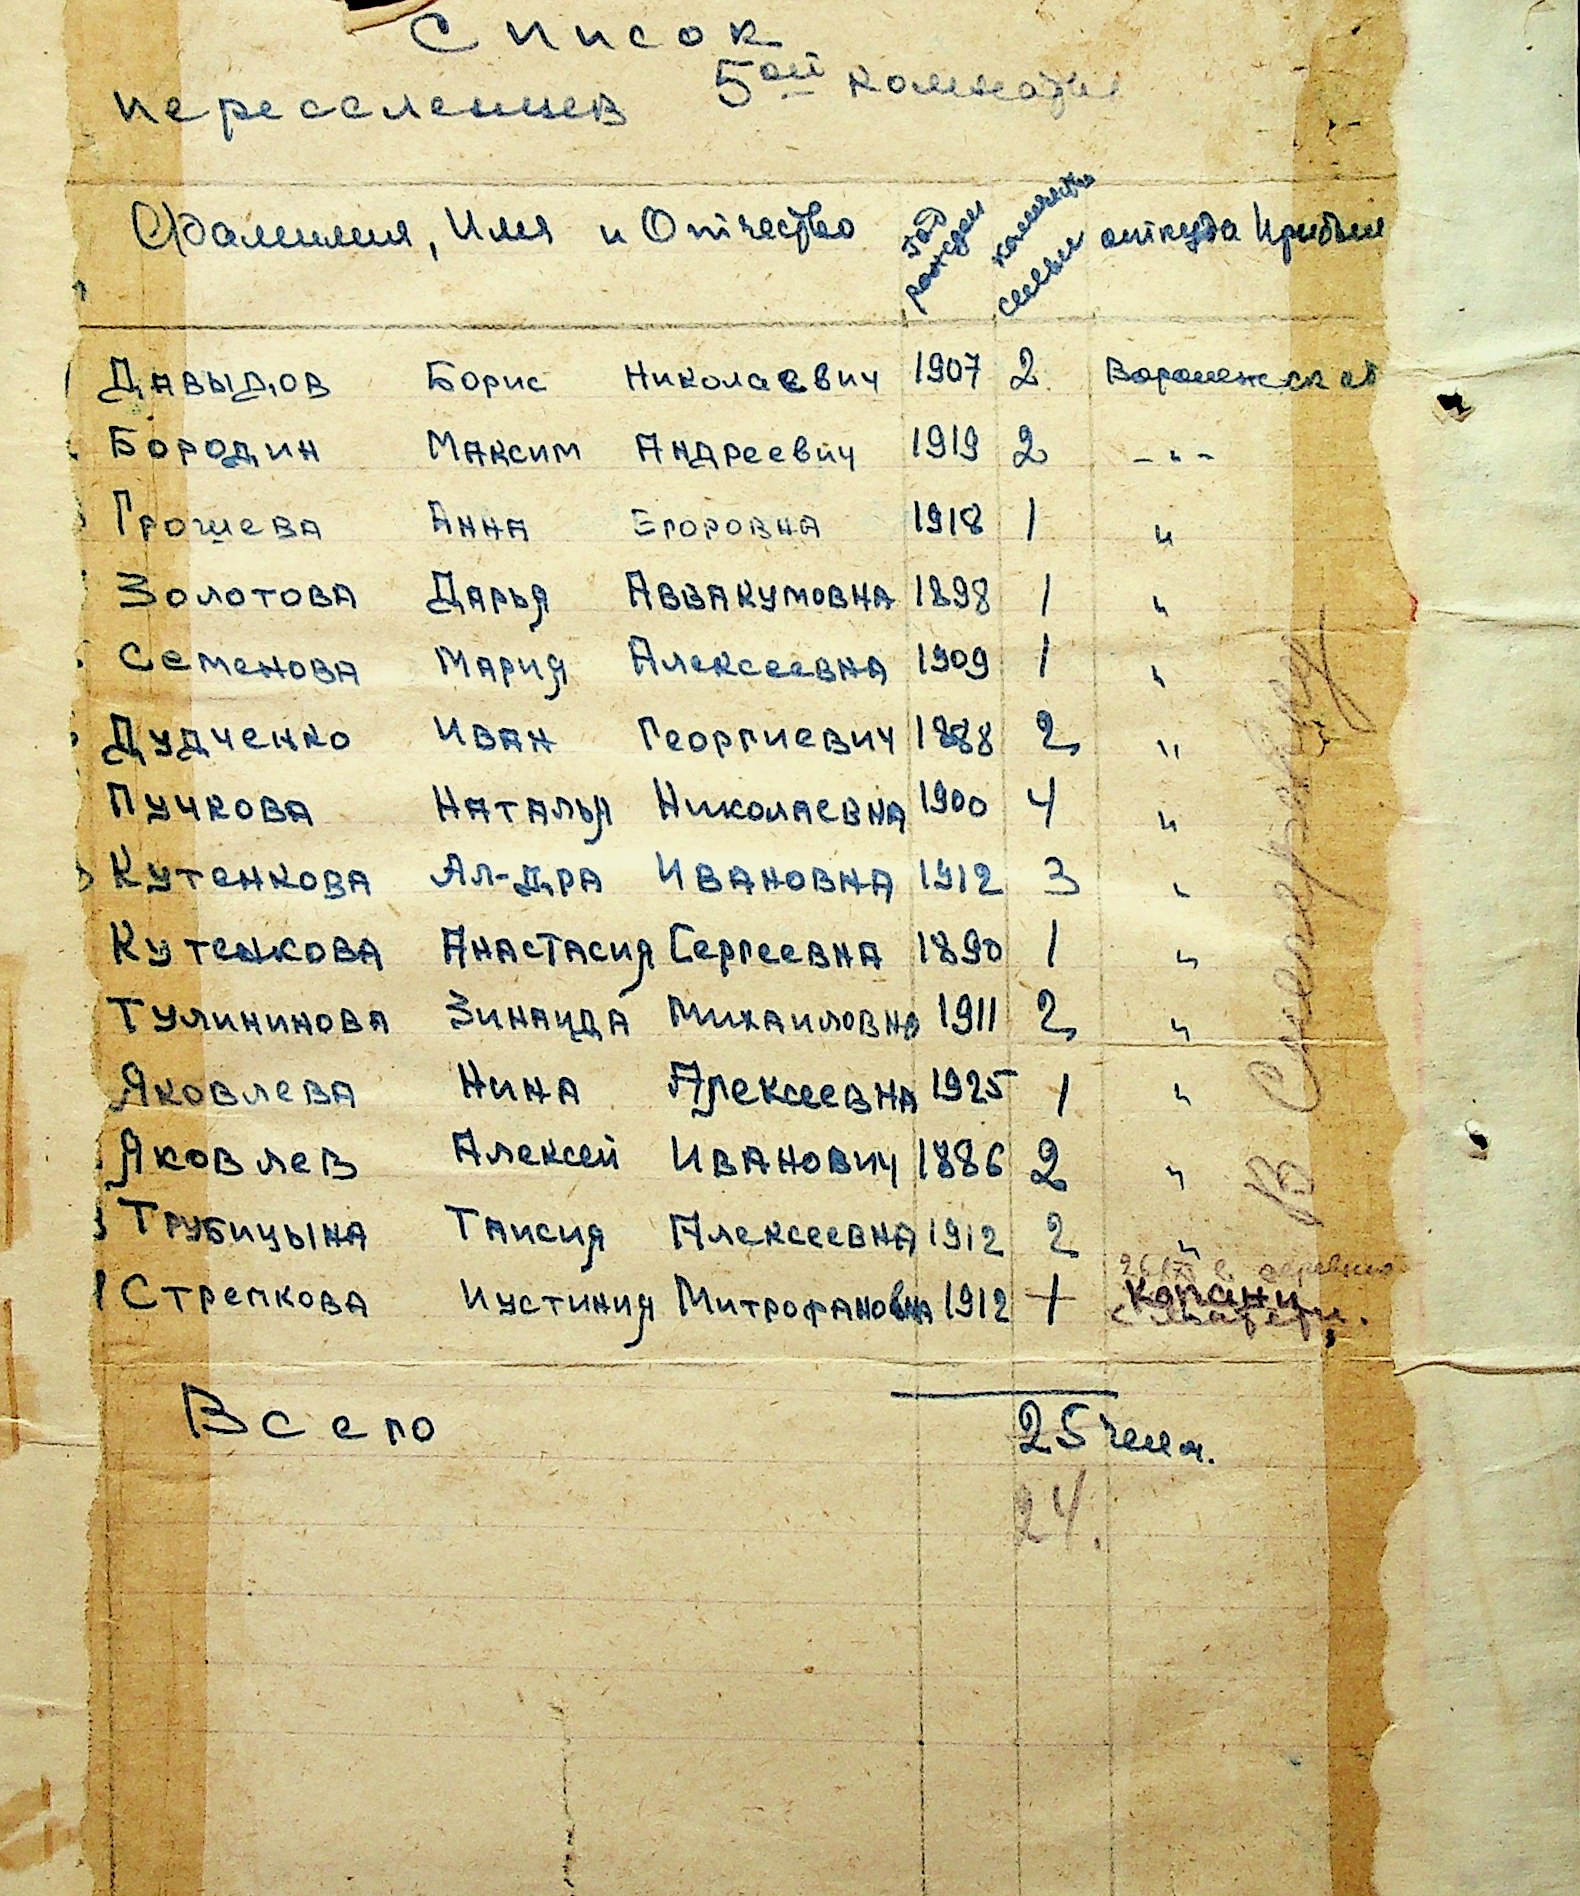 Список
переселенцев 5ой комнаты
Фамилия, Имя и Отчество год рожден количество семьи откуда прибыл
Давыдов Борис Николаевич 1907 2 Воронежская
Бородин Максим Андреевич 1919 2 -"-
Грошева Анна Егоровна 1918 1 "
Золотова Дарья Аввакумовна 1898 1 "
Семенова Мария Алексеевна 1909 1 "
Дудченко Иван Георгиевич 1888 2 "
Пучкова Наталья Николаевна 1900 4 "
Кутенкова Ал-дра Ивановна 1912 3 "
Кутенкова Анастасия Сергеевна 1890 1 "
Тулининова Зинаида Михаиловна 1911 2 "
Яковлева Нина Алексеевна 1925 1 "
Яковлев Алексей Иванович 1886 2 "
Трубицына Таисия Алексеевна 1912 2 "
Стрепкова Иустиния Митрофановна 1912 1 Копани
Всего 25 чел.
24.
В